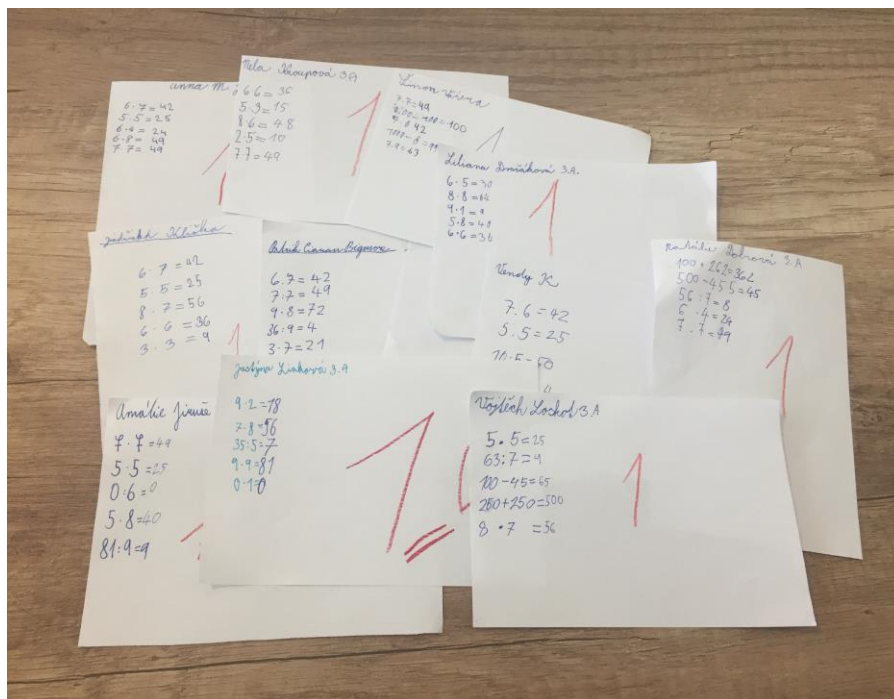 Anna M
6·7=42
5·5=25
6·4=24
6·8=49
7·7=49
Nela Kroupová 3.A
6·6=36
5·3=15
8·6=48
2·5=10
7·7=49
1
Šimon
7·7=49
7·9=63
1
Liliana Dvořáková 3.A.
6·5=30
8·8=64
9·1=9
5·8=40
6·6=36
1
Jindřich Klička
6·7=42
5·5=25
8·7=56
6·6=36
3·3=9
1
Patrik
6·7=42
7·7=49
9·8=72
36:9=4
3·7=21
Vendy K
7·6=42
5·5=25
10·5=50
Natálie Dobrová 3.A
100+262=362
500-455=45
56:7=8
6·4=24
7·7=49
1
Amálie Jiruše
7·7=49
5·5=25
0:6=0
5·8=40
81:9=9
Justýna Linhová 3.A
9·2=18
7·8=56
35:5=7
9·9=81
0·1=0
1
Vojtěch Lochol 3A
5·5=25
63:7=9
100-45=65
250+250=500
8·7=56
1